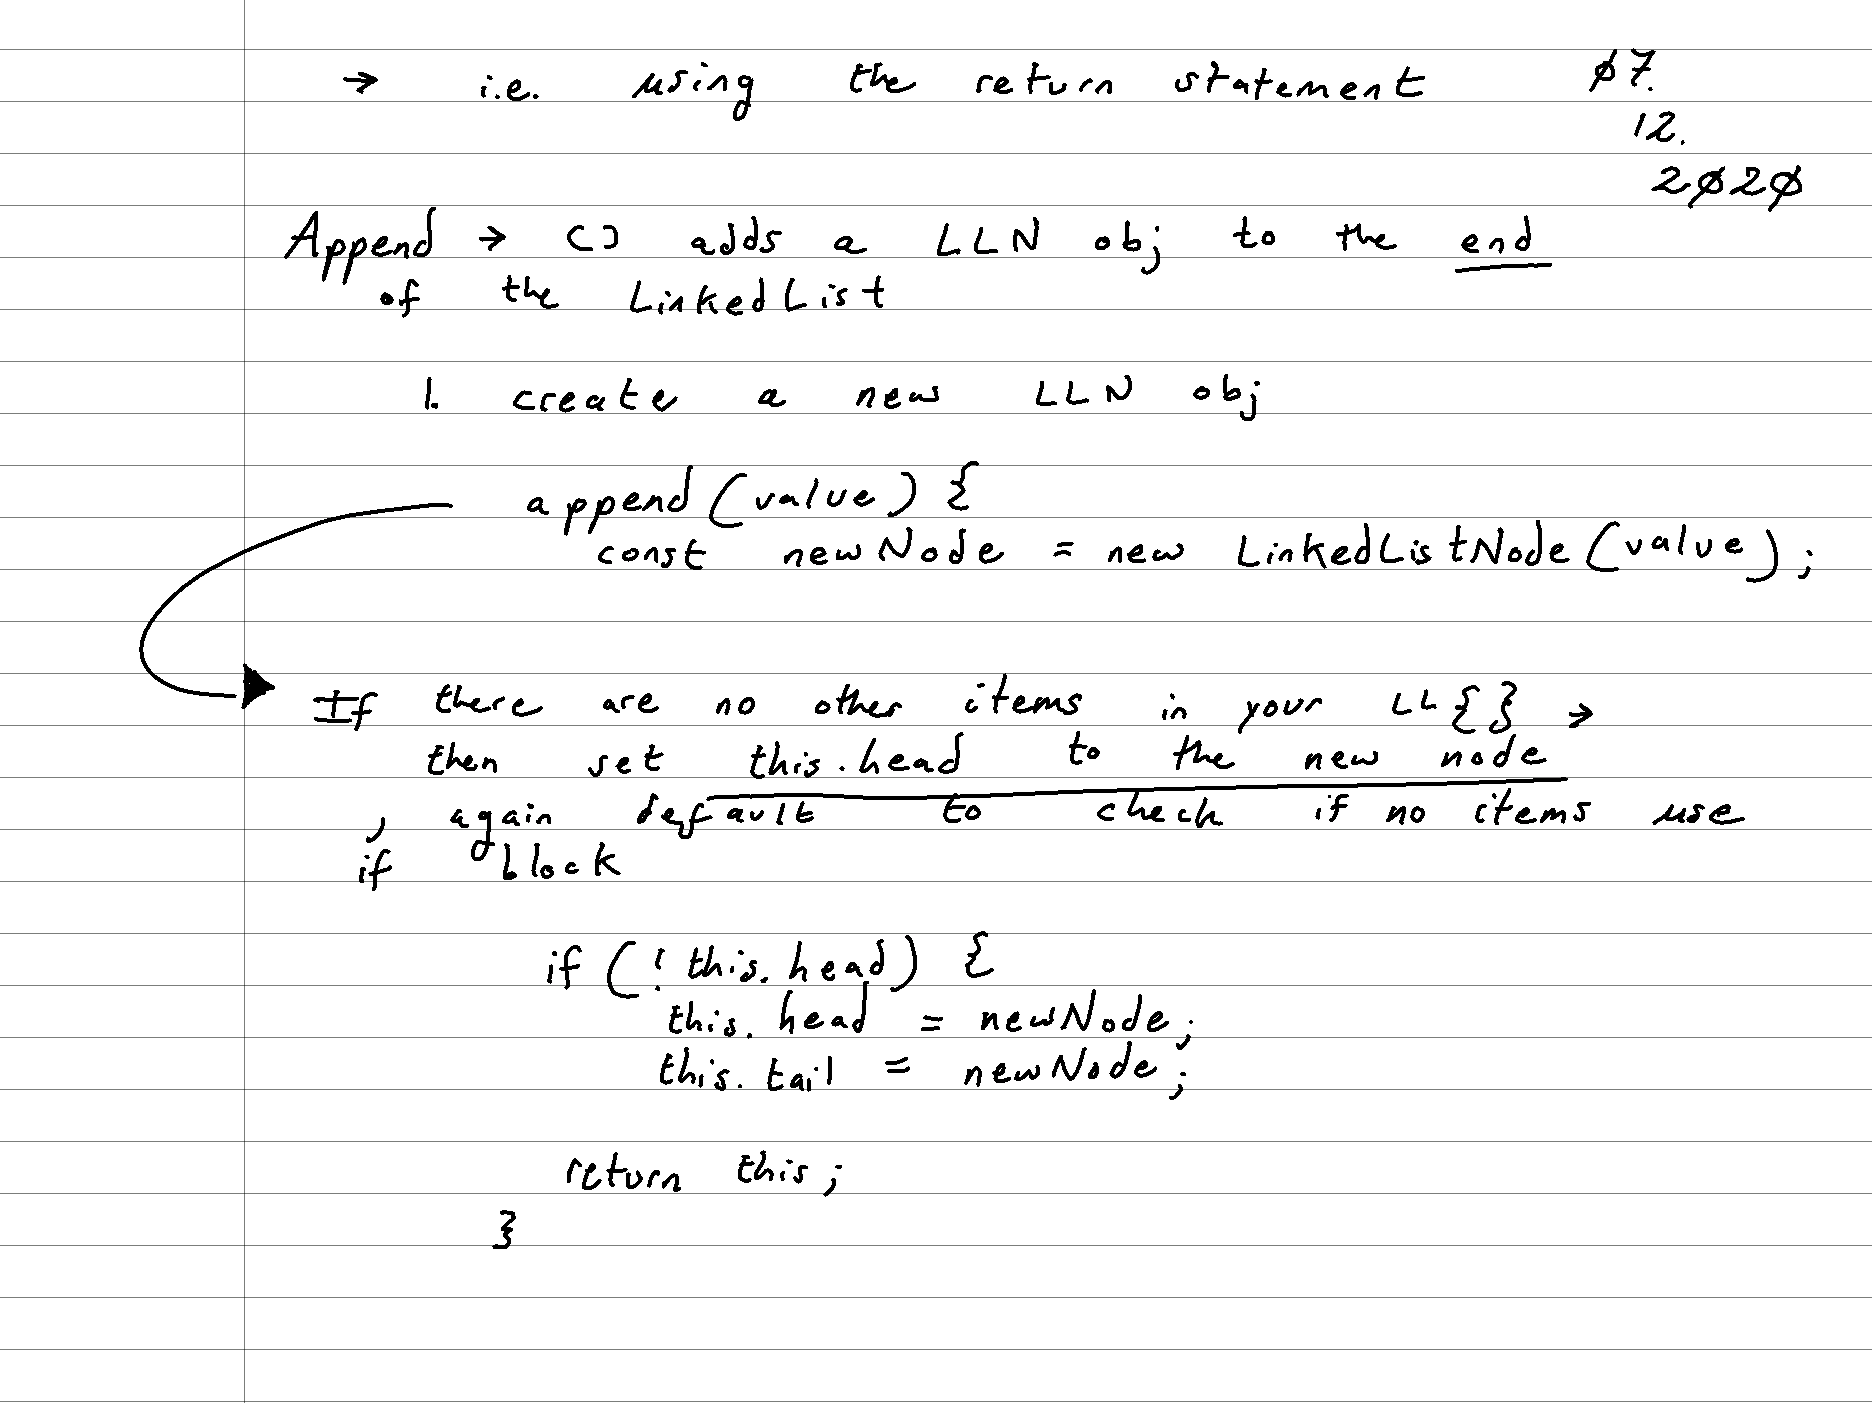 → i.e. using the return statement
07.
12.
2020
Append → () adds a LLN obj to the end
of the LinkedList
1. create a new LLN obj
append(value) {
const newNode = new LinkedListNode(value);
If there are no other items in your LL{} →
then set this.head to the new node
, again default to check if no items use
if block
if (!this.head) {
this.head = newNode;
this.tail = newNode;
return this;
}